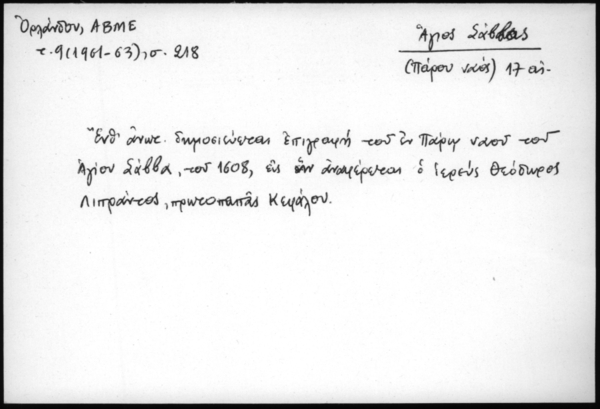 Ὀρλάνδου, ΑΒΜΕ
τ. 9 (1961-63), σ. 218
Ἅγιος Σάββας
(Πάρου ναός) 17 αἰ.
Ἔνθ' ἀνωτ. δημοσιεύεται ἐπιγραφή τοῦ ἐν Πάρῳ ναοῦ τοῦ
Ἁγίου Σάββα, τοῦ 1608, εἰς ἣν ἀναφέρεται ὁ ἱερεύς Θεόδωρος
Λιπράντος, πρωτοπαπᾶς Κεφάλου.